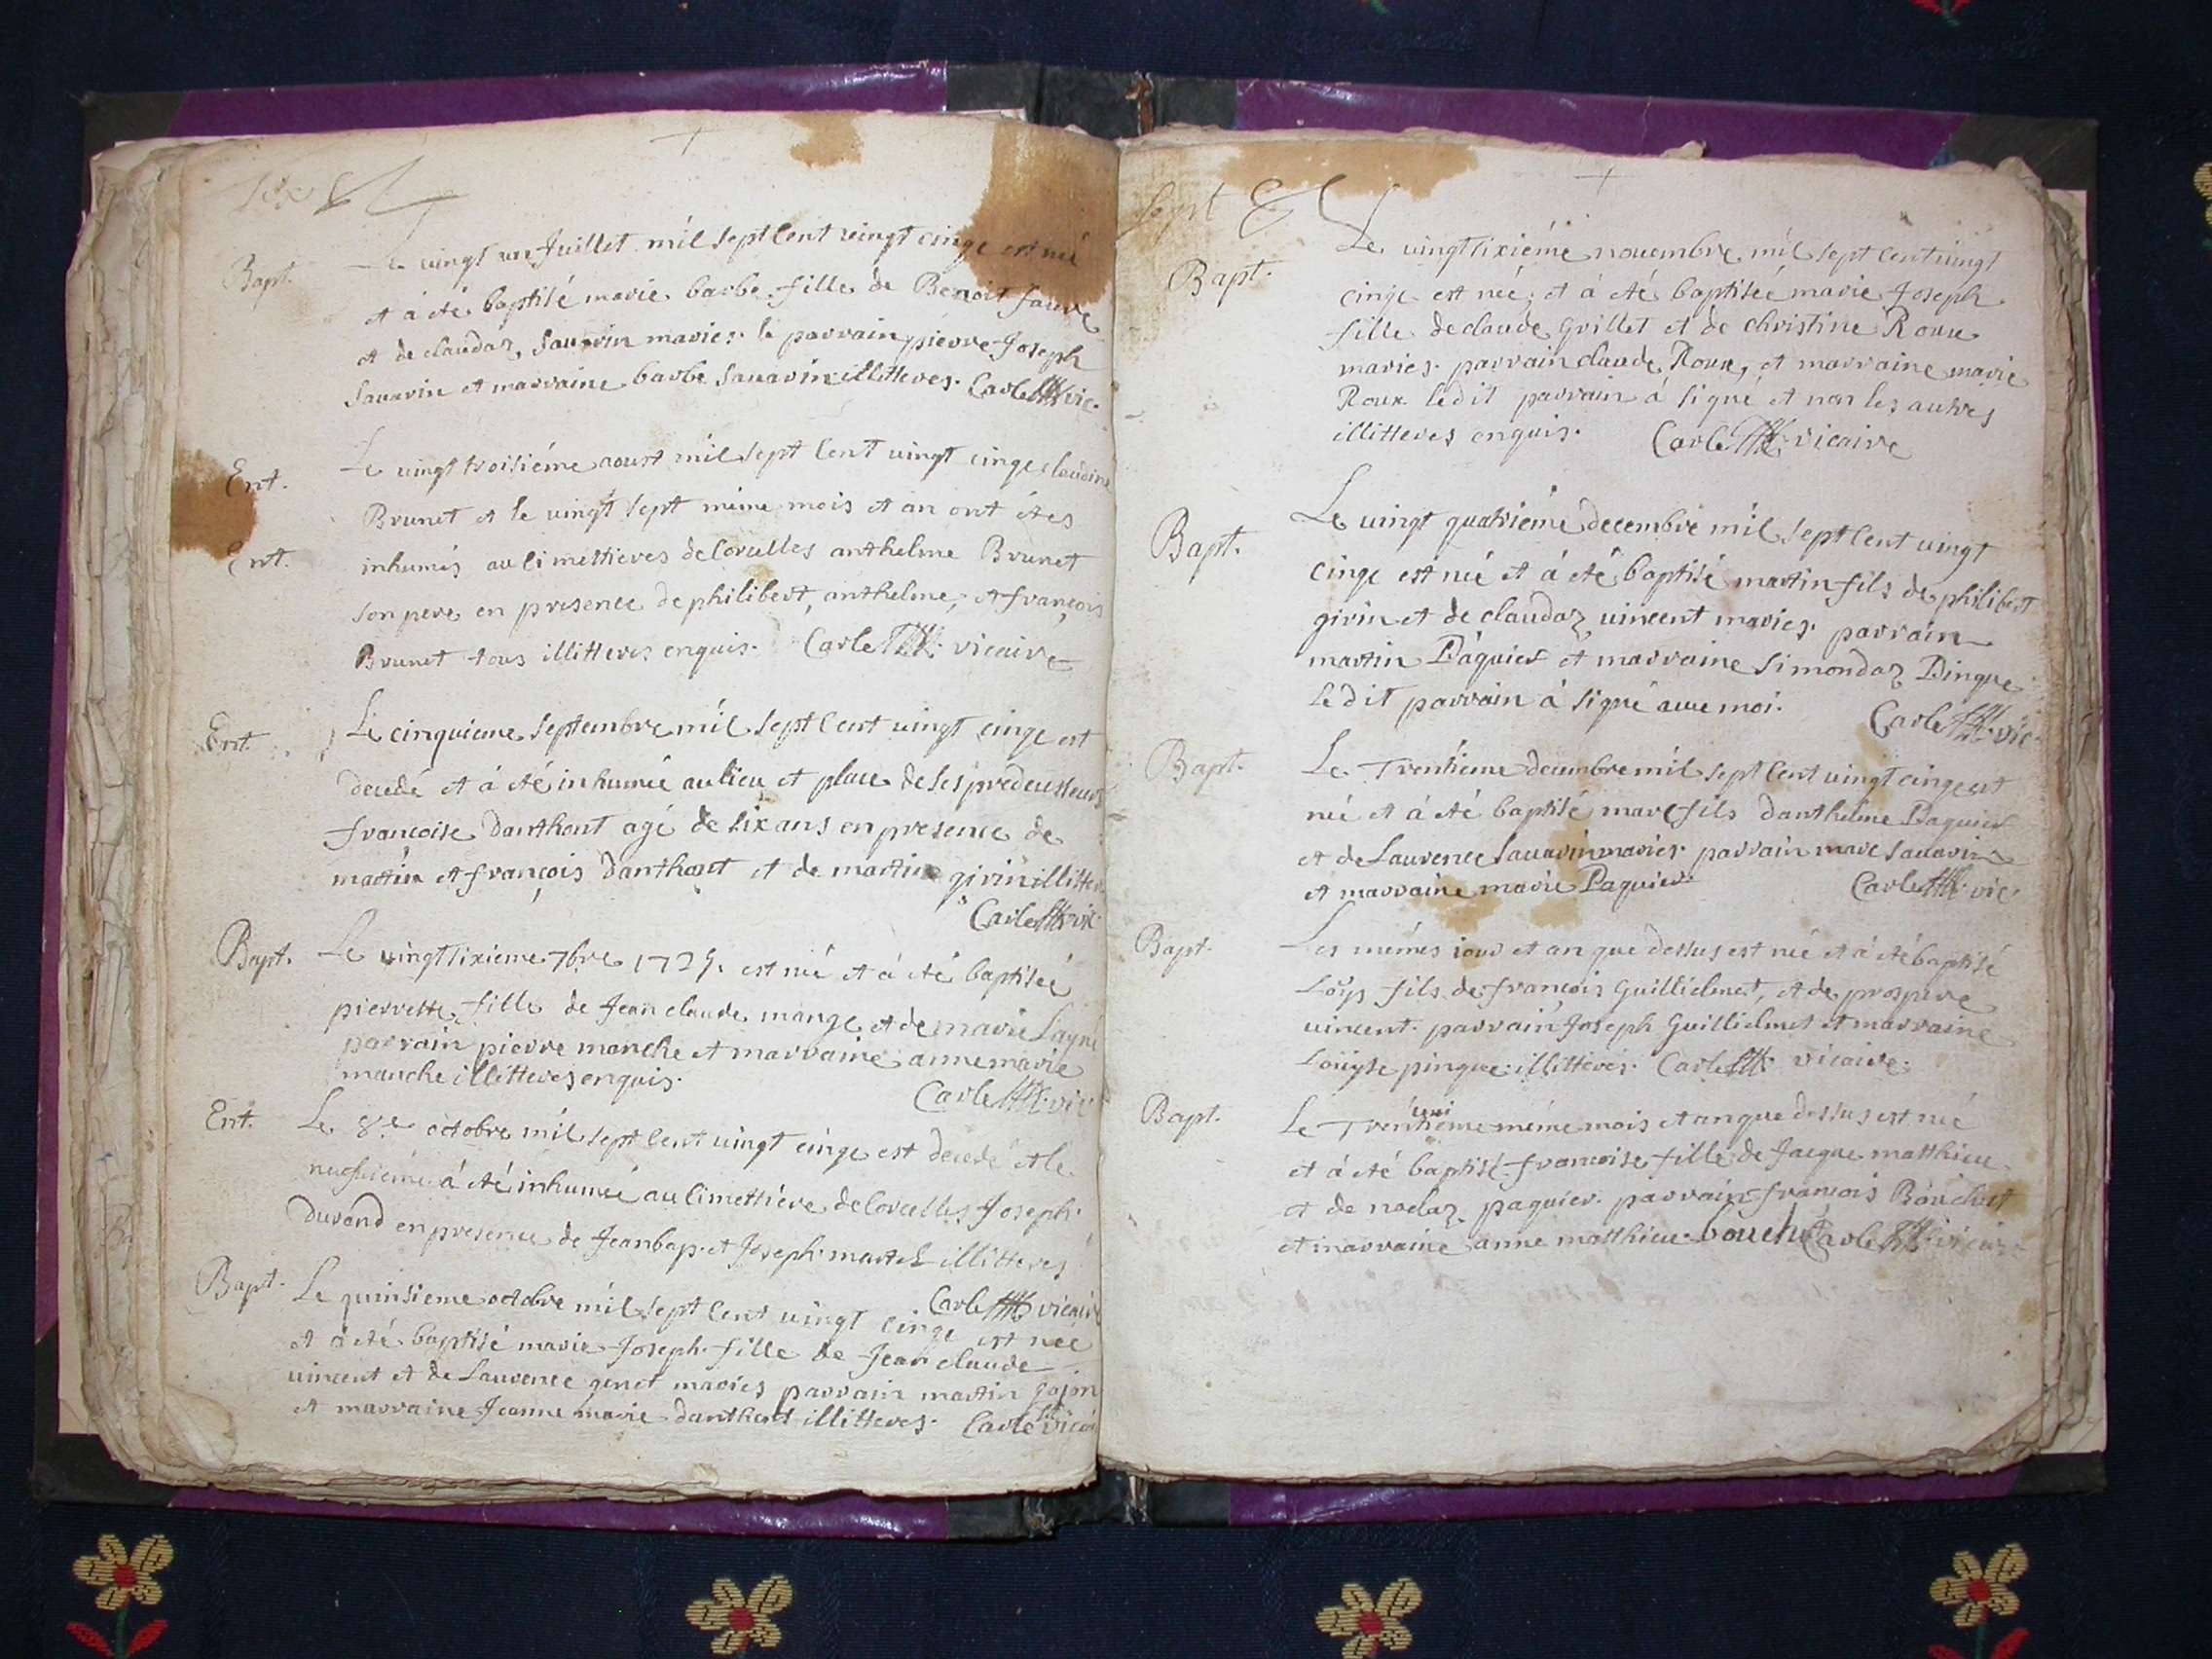 Bapt. Le vingt un Juillet mil sept Cent vingt cinqe est né
et à été baptisé marie barbe fille de Benoit faure
et de claudaz Sauarin maries. le parrain pierre Joseph
Sauarin et marraine barbe Sauarin illitteres. Carle vic.
Ent. Le vingt troisiéme aoust mil sept Cent uingt cinqe claudine
Brunet et le uingt sept méme mois et an ont étés
Ent. inhumés au Cimettieres de Corcelles anthelme Brunet
son pere en presence de philibert, anthelme, et françois
Brunet tous illitteres enquis. Carle vicaire
Ent. Le cinquieme Septembre mil sept Cent uingt cinqe est
decedé et à été inhumée au lieu et place de ses prédecesseurs
francoise Danthont agé de six ans en presence de
martin et françois Danthont et de martin girin illitter
Carle vic
Bapt. Le vingt sixieme 7bre 1725. est né et à été baptiseé
pierrette fille de Jean claude mange et de marie Layné
parrain pierre manche et marraine anne marie
manche illitteres enquis.
Carle vic
Ent. Le 8.e octobre mil sept Cent uingt cinqe est decedé et le
neufuiéme à été inhumée au Cimettiére de Corcelles Joseph
Durand en presence de Jeanbap. et Joseph martel illitteres
Carle vicaire
Bapt. Le quinsieme octobre mil sept Cent uingt cinqe est neé
et à été baptisé marie Joseph fille de Jean claude
uincent et de Laurence genet maries parrain martin gojon
et marraine Jeanne marie danthont illitteres. Carle vicai
Sept
Bapt. Le uingt sixiéme nouembre mil sept Cent uingt
cinqe est neé, et à été baptiseé marie Joseph
fille de claude Grillet et de christine Roux
maries. parrain claude Roux, et marraine marie
Roux ledit parrain à signé et non les autres
illitteres enquis. Carle vicaire
Bapt. Le uingt quatriéme decembre mil sept Cent uingt
cinqe est né et à été baptisé martin fils de philibert
girin et de claudaz uincent maries. parrain
martin Paquier et marraine Simondaz Pingue
Ledit parrain à signé auec moi.
Carle vic
Bapt. Le Trentieme decembre mil sept Cent uingt cinqe est
né et à été baptisé marc fils danthelme Paquier
et de Laurence Sauarin maries. parrain marc Sauarin
et marraine marie Paquier. Carle vic.
Bapt. Les mémes iour et an que dessus est né et à été baptisé
Loÿs fils de françois Guillielmet, et de prospere
uincent. parrain Joseph Guillielmet et marraine
Loüyse pingue illitterés. Carle vicaire.
Bapt. Le Trentieme méme mois et an que dessus est neé
et à été baptisé francoise fille de Jacque matthieu
et de noelaz paquier. parrain françois Bouchet
et marraine anne matthieu. bouche Carle vicair